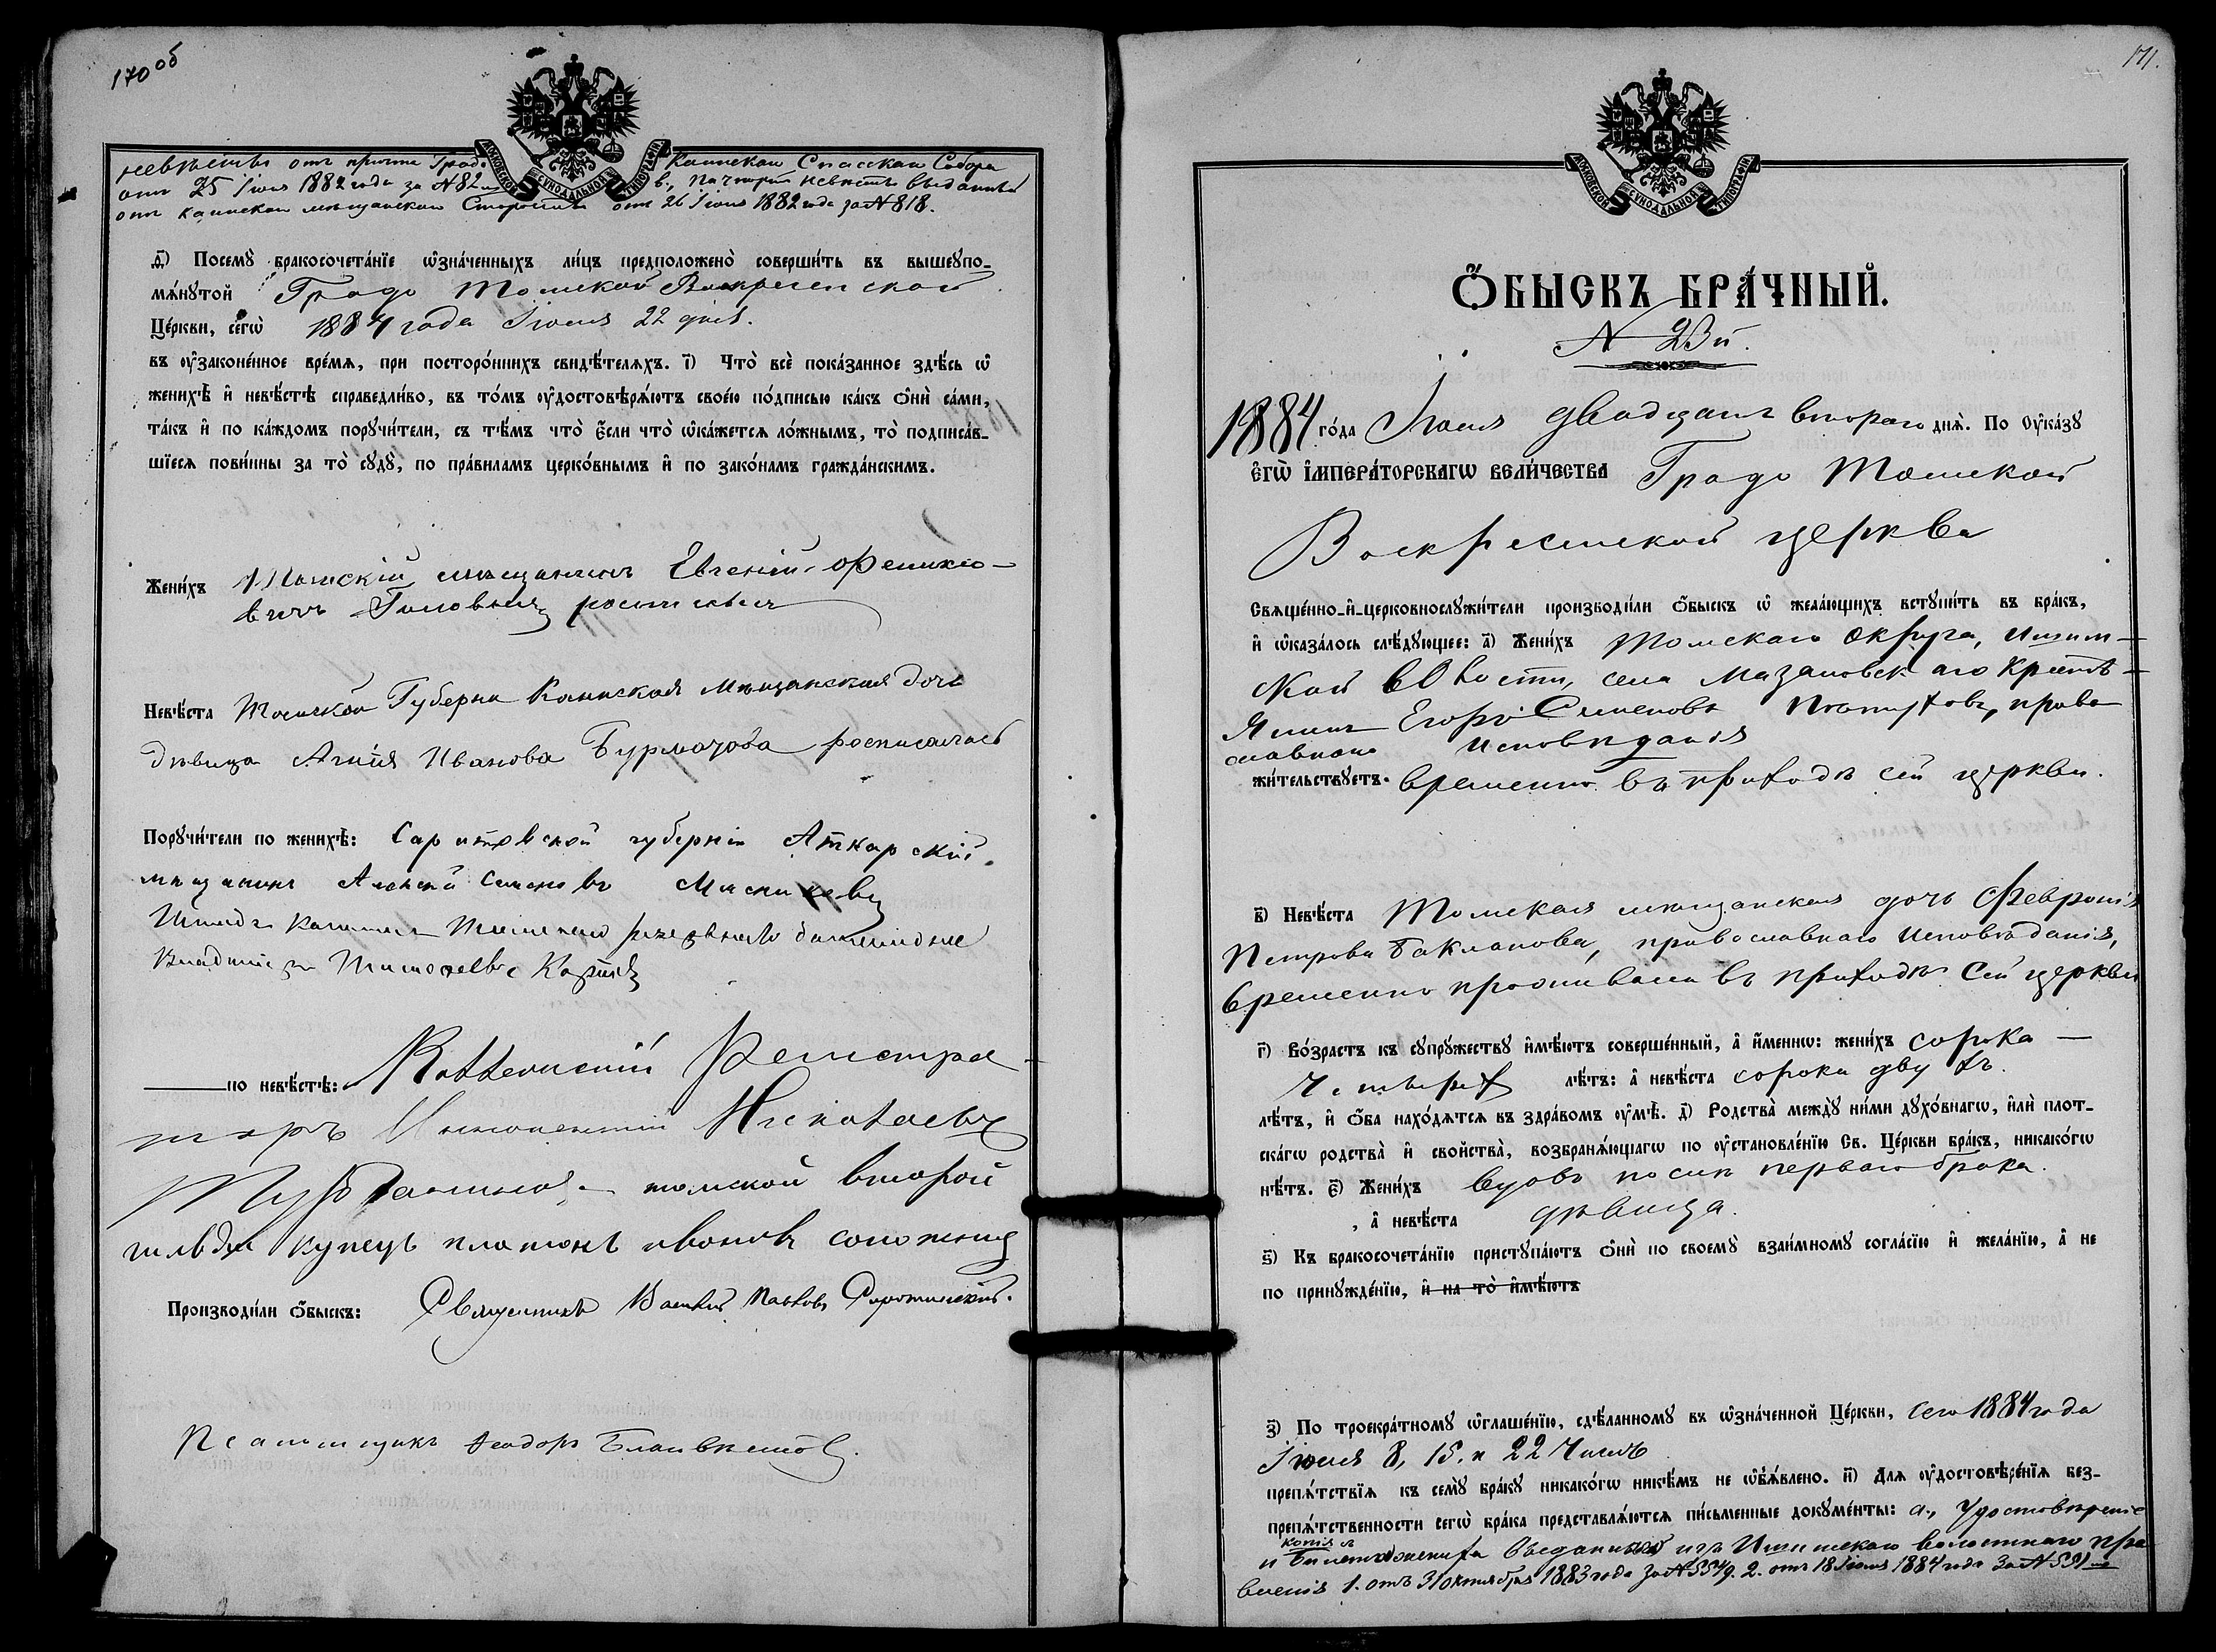 170 об
невѣсты отъ причта Градо Каинскаго Спасскаго Собора
отъ 25 Іюня 1882 года за № 82 в., паспортъ невѣсты выданный
отъ Каинскаго мѣщанскаго Старосты отъ 26 Іюня 1882 года за № 818.
МОСКОВСКОЙ СѴНОДАЛЬНОЙ ТИПОГРАФІИ
Посемꙋ бракосочетаніе ѡзначенныхъ лицъ предположено совершить въ вышеꙋпо-
мянꙋтой Градо Томской Воскресенской
Церкви, сегѡ 1884 года Іюня 22 дня.
въ ᲂузаконенное время, при постороннихъ свидѣтеляхъ. і) Что все показанное здѣсь ѡ
женихѣ и невѣстѣ справедливо, въ томъ ᲂудостовѣряютъ своею подписью какъ ѻни сами,
такъ и по каждомъ порꙋчители, съ тѣмъ что если что ѡкажется ложнымъ, то подписав-
шіеся повинны за то сꙋдꙋ, по правиламъ церковнымъ и по законамъ гражданскимъ.
Женихъ Томскій мѣщанинъ Евгеній
вичъ Головня росписался
Невѣста Томской Губерни Каинская Мѣщанская дочь
дѣвица Агнія Иванова Бурмачова росписалась
Порꙋчители по женихѣ: Саратовской губерніи Аткарскій
мѣщанинъ Алексѣй Семеновъ
Штабсъ Капитанъ Томскаго резервнаго баталіона
по невѣстѣ: Коллежскій Регистра-
торъ Иннокентій Николаевъ
томской второй
гильдіи купецъ платонъ ивановъ
Производили ѻбыскъ: Священникъ Василій Павловъ Сиротинскій.
Псаломщикъ Ѳеодоръ
171.
МОСКОВСКОЙ СѴНОДАЛЬНОЙ ТИПОГРАФІИ
ѺБЫСКЪ БРАЧНЫЙ.
№ 23й.
1884 года Іюня двадцать втораго дня. По Оуказꙋ
ЕГѠ ІМПЕРАТОРСКАГѠ ВЕЛИЧЕСТВА Градо Томской
Воскресенской церкви
Священно-и-церковнослꙋжители производили ѻбыскъ ѡ желающихъ встꙋпить въ бракъ,
и ѡказалось слѣдꙋющее: а) Женихъ Томскаго Округа, Ишим-
ской волости, села Мазаловскаго Кресть-
янинъ Егоръ Семеновъ право
славнаго исповѣданія
жительствꙋетъ временно въ приходѣ сей церкви.
в) Невѣста Томская мѣщанская дочь Февронія
Петрова Бакланова, православнаго исповѣданія,
временно проживала въ приходѣ сей церкви
г) Возрастъ къ сꙋпрꙋжествꙋ имѣютъ совершенный, а именнѡ: женихъ сорока
четырех лѣтъ: а невѣста сорока двухъ.
лѣтъ, и ѻба находятся въ здравомъ ᲂумѣ. д) Родства междꙋ ними дꙋховнагѡ, или плот-
скагѡ родства и свойства, возбраняющагѡ по ᲂустановленію Св. Церкви бракъ, никакогѡ
нѣтъ. е) Женихъ вдовъ послѣ перваго брака.
, а невѣста дѣвица.
ѕ) Къ бракосочетанію пристꙋпаютъ ѻни по своемꙋ взаимномꙋ согласію и желанію, а не
по принꙋжденію, и на то имѣютъ
з) По троекратномꙋ ѡглашенію, сдѣланномꙋ въ ѡзначенной Церкви, сего 1884 года
Іюня 8, 15. и 22 Чиселъ
препятствія къ семꙋ бракꙋ никакогѡ никѣмъ не ѡбъявлено. и) Для ᲂудостовѣренія без-
препятственности сегѡ брака представляются письменные докꙋменты: а., Удостовѣреніе
и копія съ билета жениха выданный изъ Ишимскаго волостнаго пра
вленія 1. отъ 31 октября 1883 года за № 5549. 2. отъ 18 Іюня 1884 года за № 591